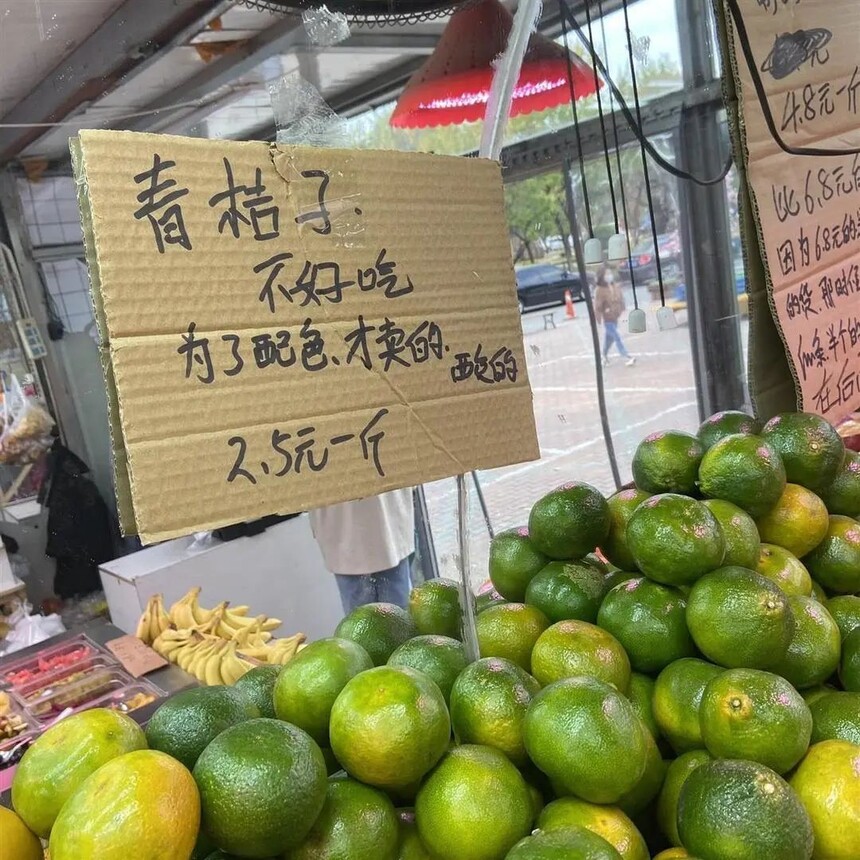 青桔子.
不好吃
为了配色、才卖的. 酸的
2.5元一斤
4.8元一
比6.8元
因为6.8元的
的货, 那时
半个的
在后